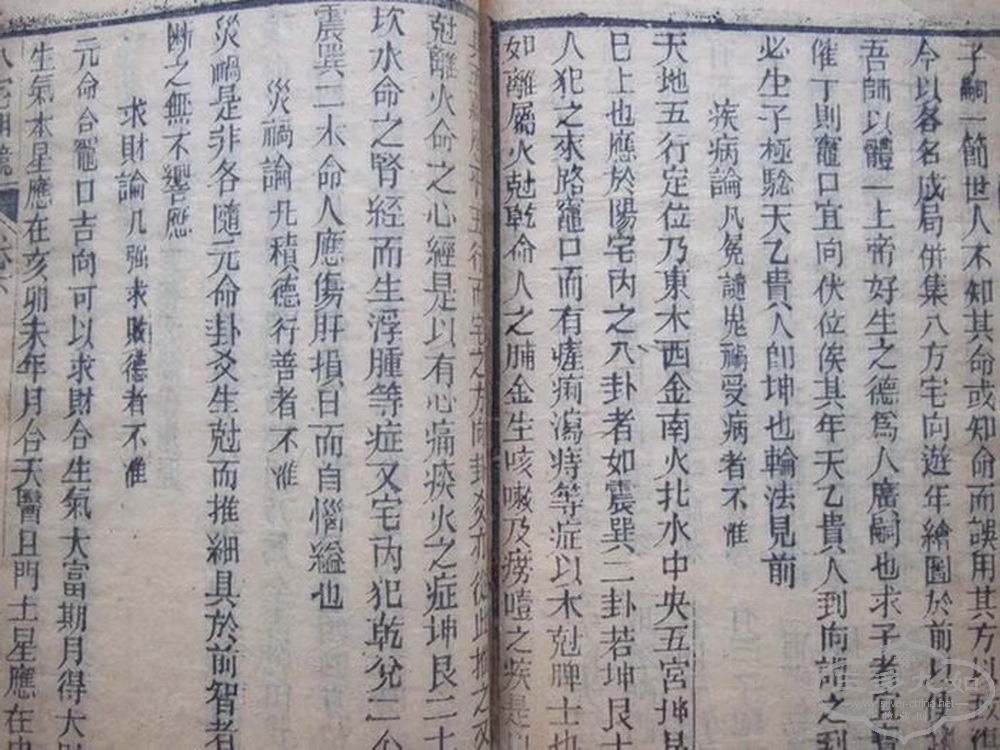 子嗣一節世人不知其命或知命而誤用其方以致
今以各名成局併集八方宅向遊年繪圖於前以傳
吾師以體一上帝好生之德為人廣嗣也求子者宜
催丁則竈口宜向伏位俟其年天乙貴人到向謂之到
必生子極騐天乙貴人即坤也輪法見前
疾病論凡冤譴鬼禍受病者不准
天地五行定位乃東木西金南火北水中央五宮坤艮
巳上也應於陽宅內之八卦者如震巽二卦若坤艮土
人犯之來路竈口而有瘧痢瀉痔等症以木尅脾土也
如離屬火尅乾命人之肺金生咳嗽及癆噎之疾是以
五行而宅之方向卦爻亦從此推之又
尅離火命之心經是以有心痛痰火之症坤艮二土
坎水命之腎經而生浮腫等症又宅內犯乾兌二金
震巽二木命人應傷肝損目而自惱縊也
災禍論凡積德行善者不准
災禍是非各隨元命卦爻生尅而推細具於前智者
斷之無不響應
求財論凡强求敗德者不准
元命合竈口吉向可以求財合生氣大富期月得大財
生氣木星應在亥卯未年月合天醫巨門土星應在
八宅明鏡 卷下